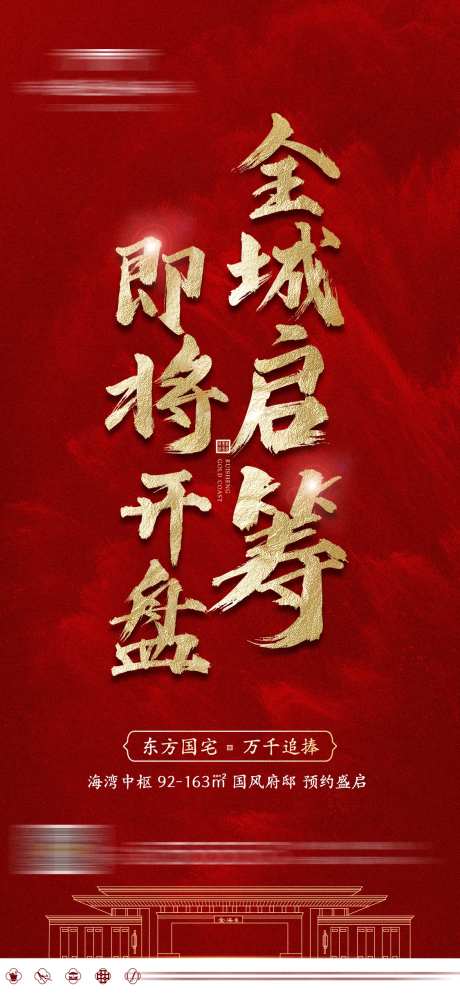 全城启筹
即将开盘
RUISHENG
GOLD COAST
东方国宅 万千追捧
海湾中枢 92-163㎡ 国风府邸 预约盛启